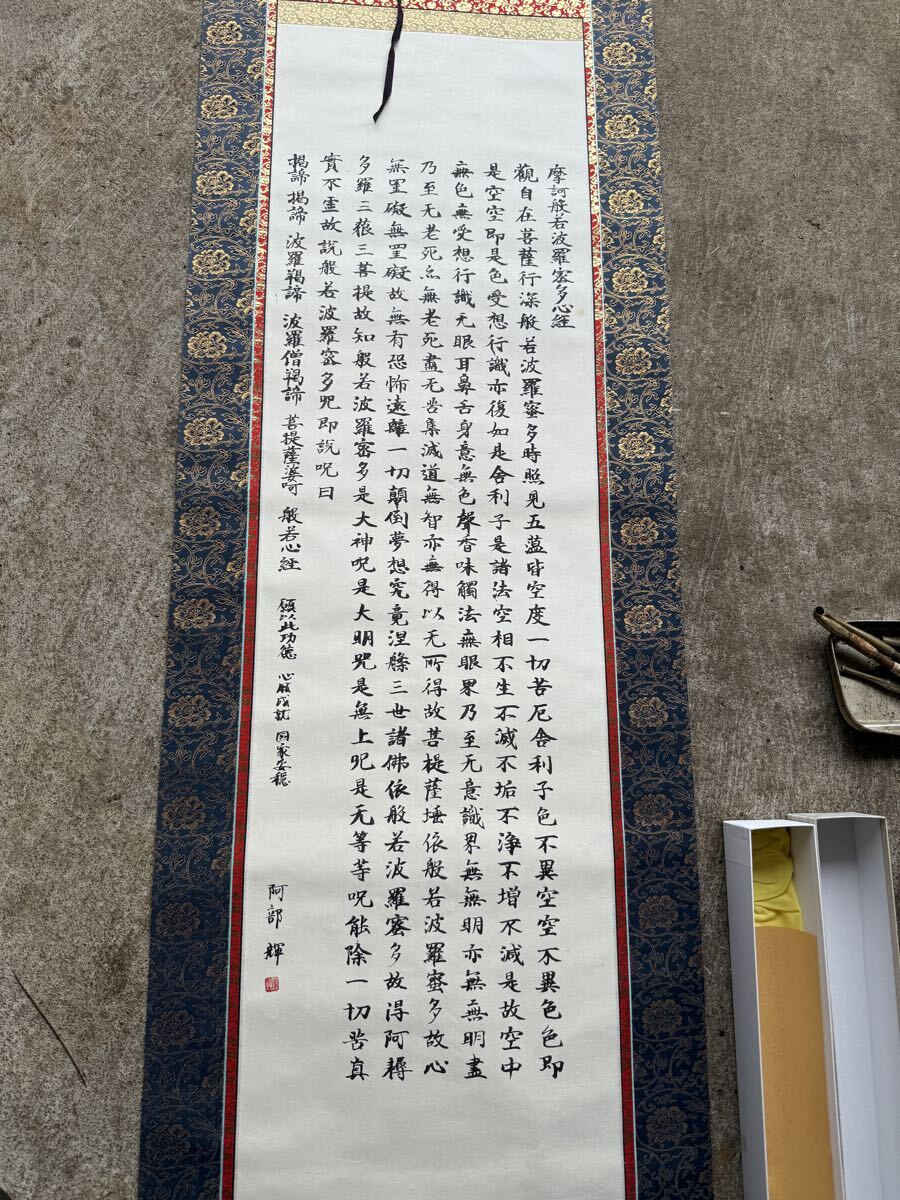 摩訶般若波羅蜜多心経
觀自在菩薩行深般若波羅蜜多時照見五蘊皆空度一切苦厄舍利子色不異空空不異色色即
是空空即是色受想行識亦復如是舍利子是諸法空相不生不滅不垢不淨不增不減是故空中
無色無受想行識无眼耳鼻舌身意無色聲香味觸法無眼界乃至无意識界無無明亦無無明盡
乃至无老死亦無老死盡无苦集滅道無智亦無得以无所得故菩提薩埵依般若波羅蜜多故心
無罣礙無罣礙故無有恐怖遠離一切顛倒夢想究竟涅槃三世諸佛依般若波羅蜜多故得阿耨
多羅三藐三菩提故知般若波羅蜜多是大神呪是大明咒是無上呪是无等等呪能除一切苦真
實不虛故説般若波羅蜜多咒即説呪曰
揭諦揭諦 波羅羯諦 波羅僧羯諦 菩提薩婆呵 般若心経 願以此功德 心願成就 国家安穏
阿部 輝